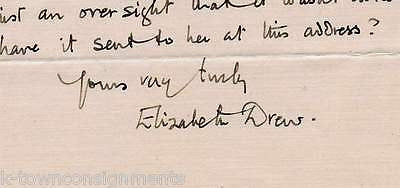 just an oversight that it
have it sent to her at this address?
Yours very truly
Elizabeth Drew.
k-townconsignments